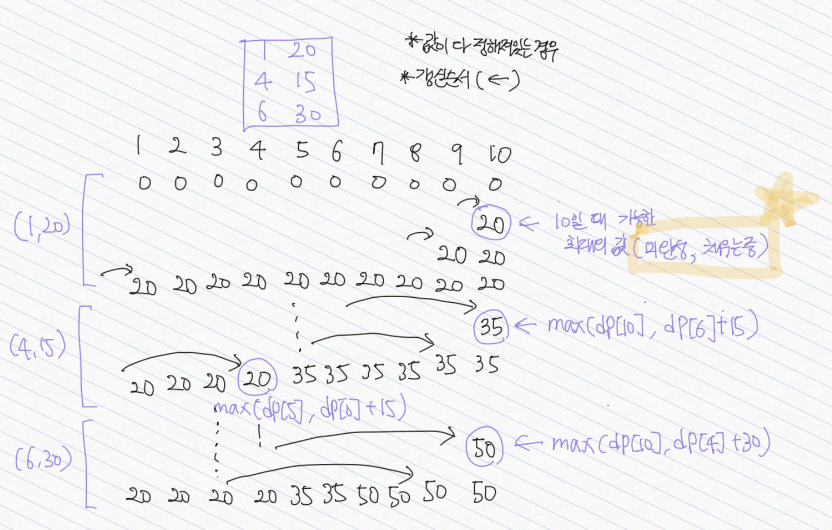 1 20
4 15
6 30
*값이 다 정해져있는 경우
*갱신순서 (←)
1 2 3 4 5 6 7 8 9 10
0 0 0 0 0 0 0 0 0 0
(1,20)
20 ← 10일 때 가능한
최대의 값 (미완성, 채우는중)
20 20
20 20 20 20 20 20 20 20 20 20
(4,15)
35 ← max(dp[10], dp[6]+15)
20 20 20 20 35 35 35 35 35 35
max(dp[5], dp[0]+15)
(6,30)
50 ← max(dp[10], dp[4]+30)
20 20 20 20 35 35 50 50 50 50